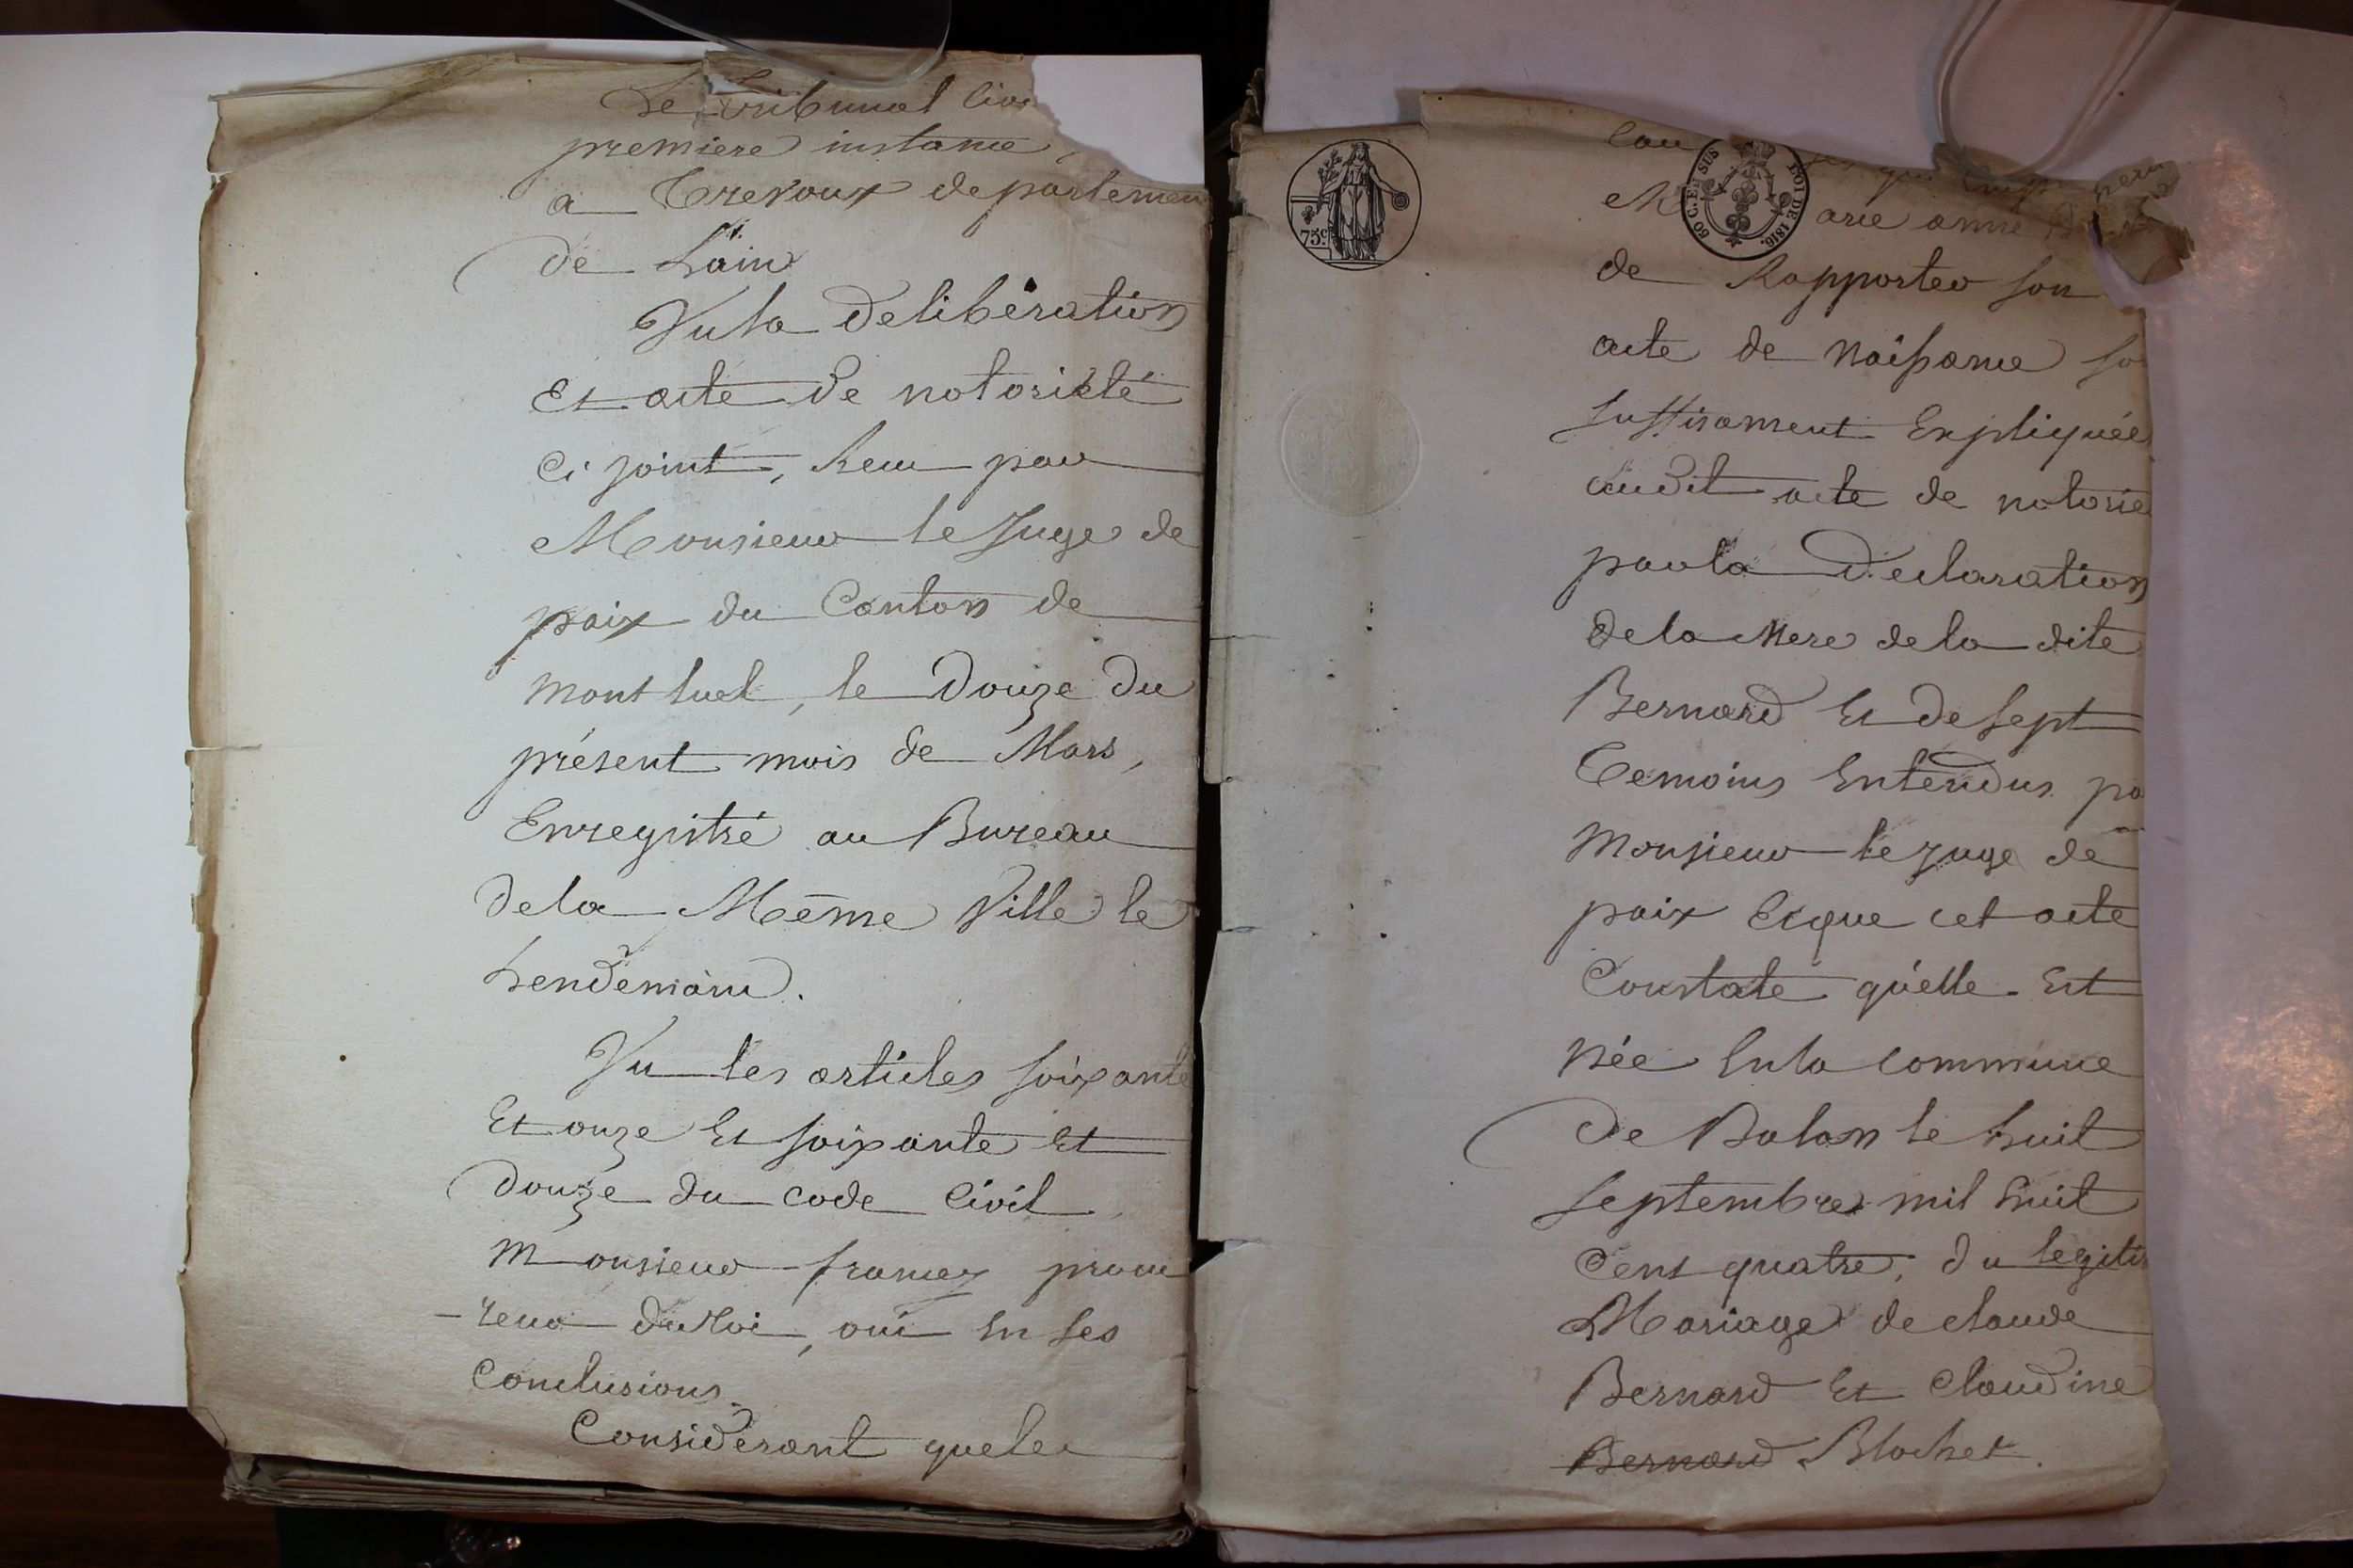 Le Tribunal Civ
premiere instance
a Trevoux departemen
de Lain
Vula deliberation
Et acte de notorieté
Ci joint, Recu par
Monsieur le Juge de
paix du Canton de
Montluel, le Douze Du
présent mois de Mars,
Enregistré au Bureau
dela Même Ville le
Lendemain.
Vu les articles soixante
Et onze Et soixante Et
Douze du code Civil
Monsieur francey procu
-reur du Roi, oui En ses
Conclusions.
Considerant queles
75c
50 C. EN SUS
LOI DE 1816.
Cau
arie anne
de Rapporter son
acte de Naissance so
suffisament Expliquée
audit acte de notorie
parla Declaration
dela Mere dela dite
Bernard Et de sept
Temoins Entendus pa
Monsieur le Juge de
paix Etque cet acte
Constate qu'elle Est
Née Enla commune
de Balan le huit
septembre mil huit
Cent quatre, du legiti
Mariage de claude
Bernard Et Claudine
Bernard Blochet.